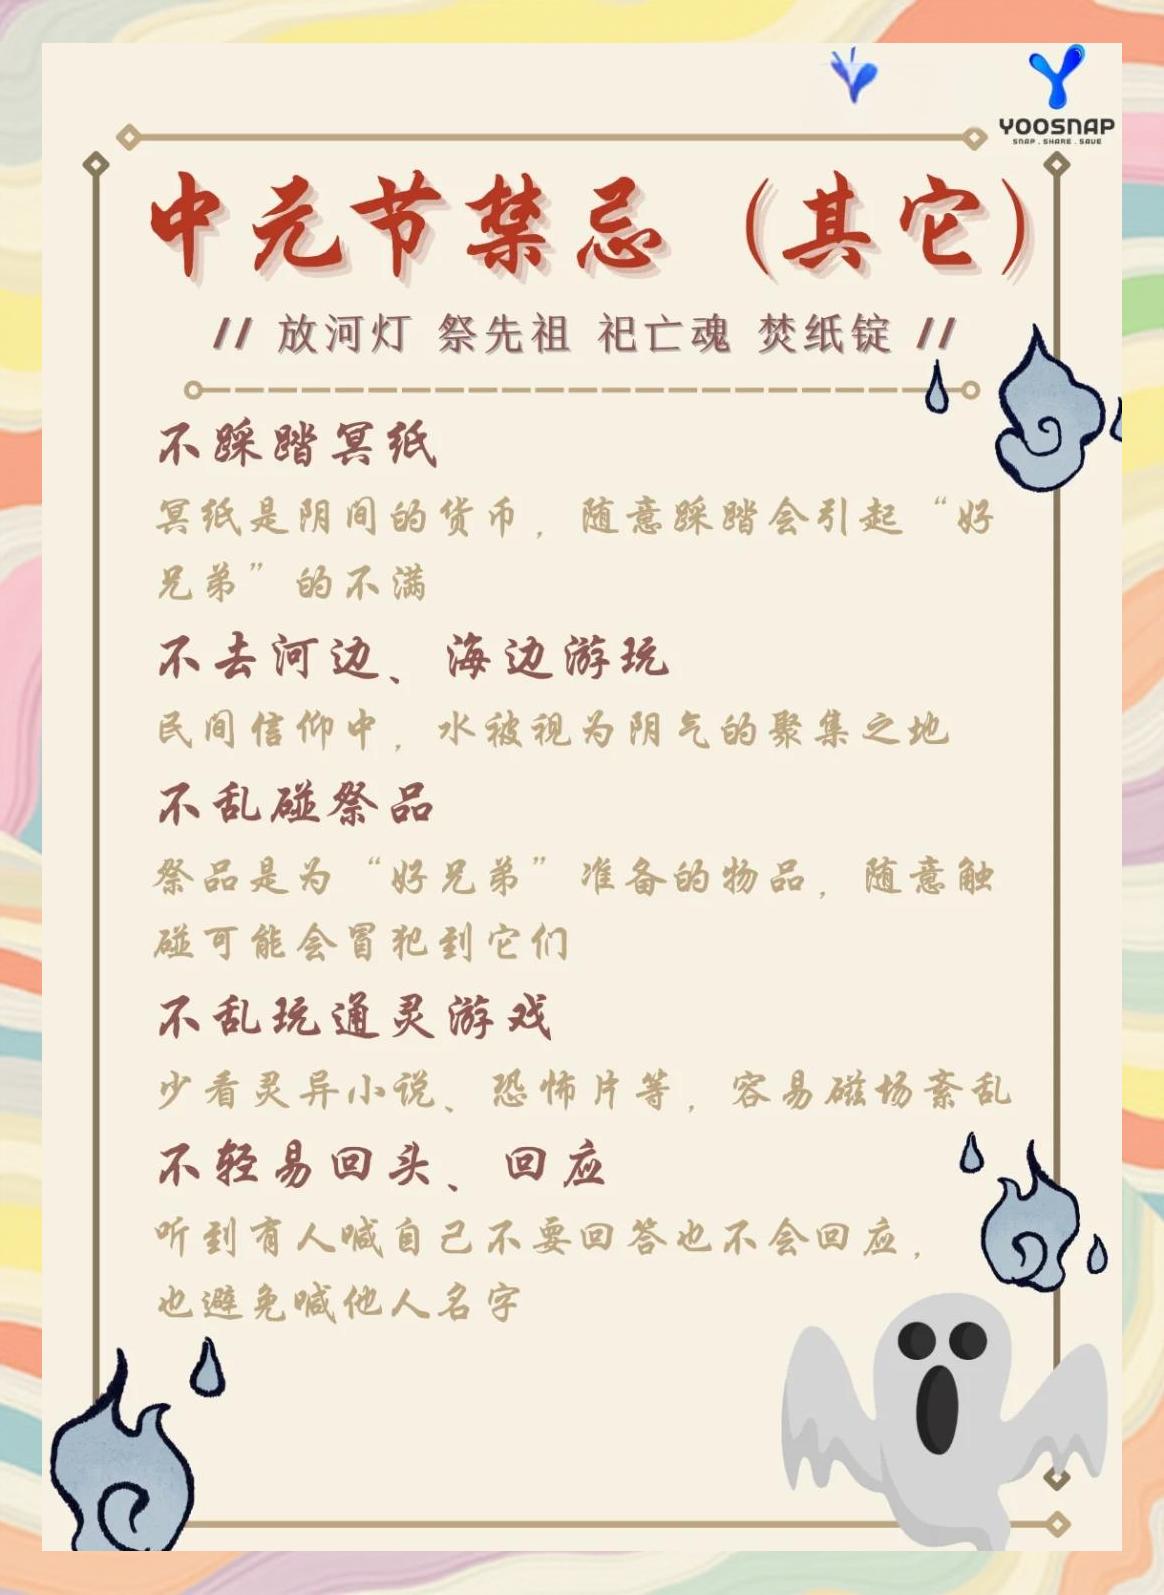 YOOSNAP
SNAP . SHARE . SAVE
中元节禁忌（其它）
// 放河灯 祭先祖 祀亡魂 焚纸锭 //
不踩踏冥纸
冥纸是阴间的货币，随意踩踏会引起“好
兄弟”的不满
不去河边、海边游玩
民间信仰中，水被视为阴气的聚集之地
不乱碰祭品
祭品是为“好兄弟”准备的物品，随意触
碰可能会冒犯到它们
不乱玩通灵游戏
少看灵异小说、恐怖片等，容易磁场紊乱
不轻易回头、回应
听到有人喊自己不要回答也不会回应，
也避免喊他人名字